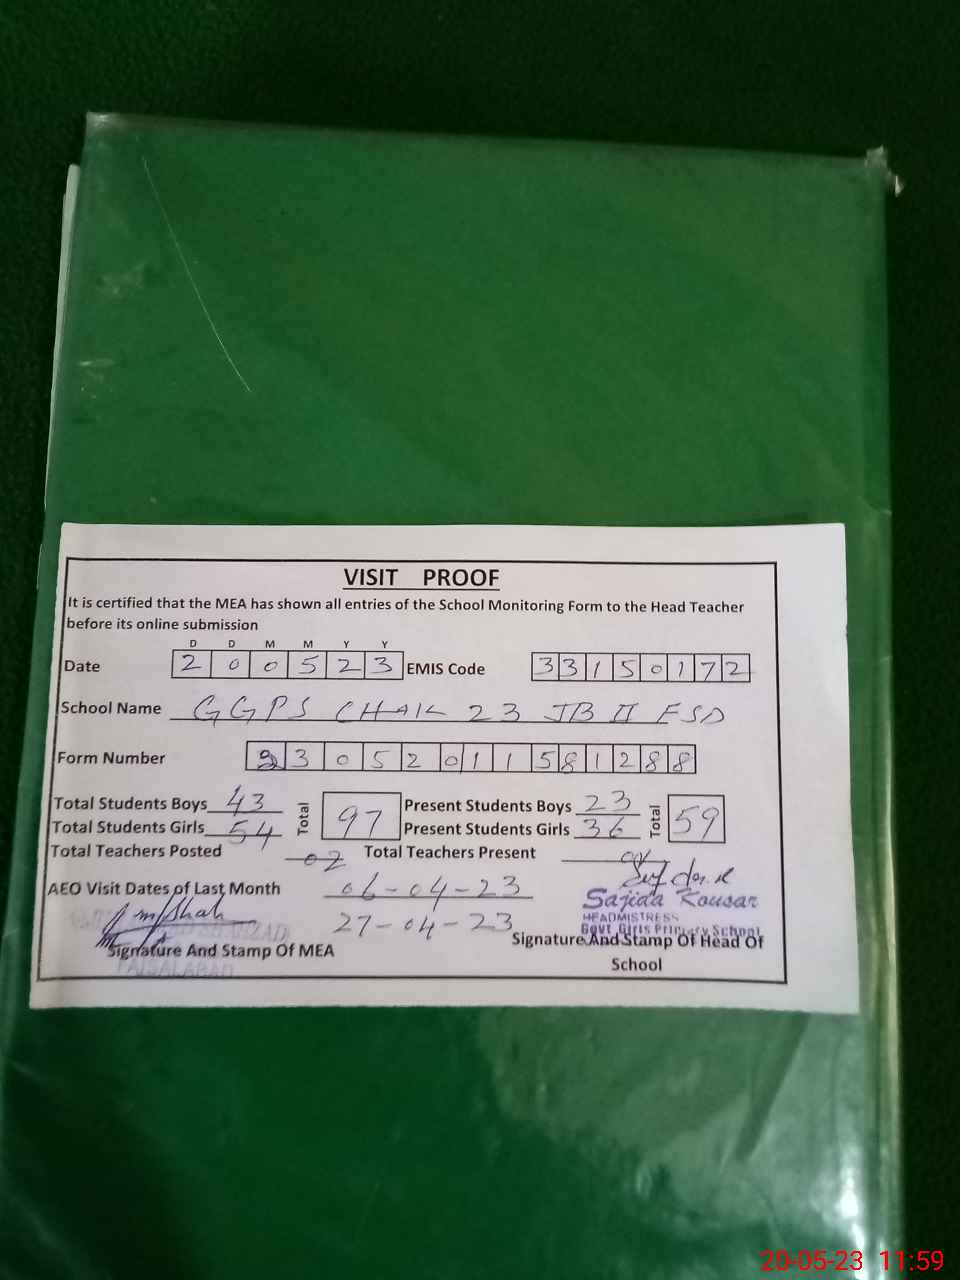 VISIT PROOF
It is certified that the MEA has shown all entries of the School Monitoring Form to the Head Teacher
before its online submission
D D M M Y Y
Date 2 0 0 5 2 3 EMIS Code 3 3 1 5 0 1 7 2
School Name GGPS CHAK 23 JB II FSD
Form Number 2 3 0 5 2 0 1 1 5 8 1 2 8 8
Total Students Boys 43 Total 97 Present Students Boys 23 Total 59
Total Students Girls 54 Present Students Girls 36
Total Teachers Posted 02 Total Teachers Present
AEO Visit Dates of Last Month 06-04-23
27-04-23
Sajida Kousar
HEADMISTRESS
Govt Girls Primary School
Signature And Stamp Of MEA
FAISALABAD
Signature And Stamp Of Head Of
School
20-05-23 11:59